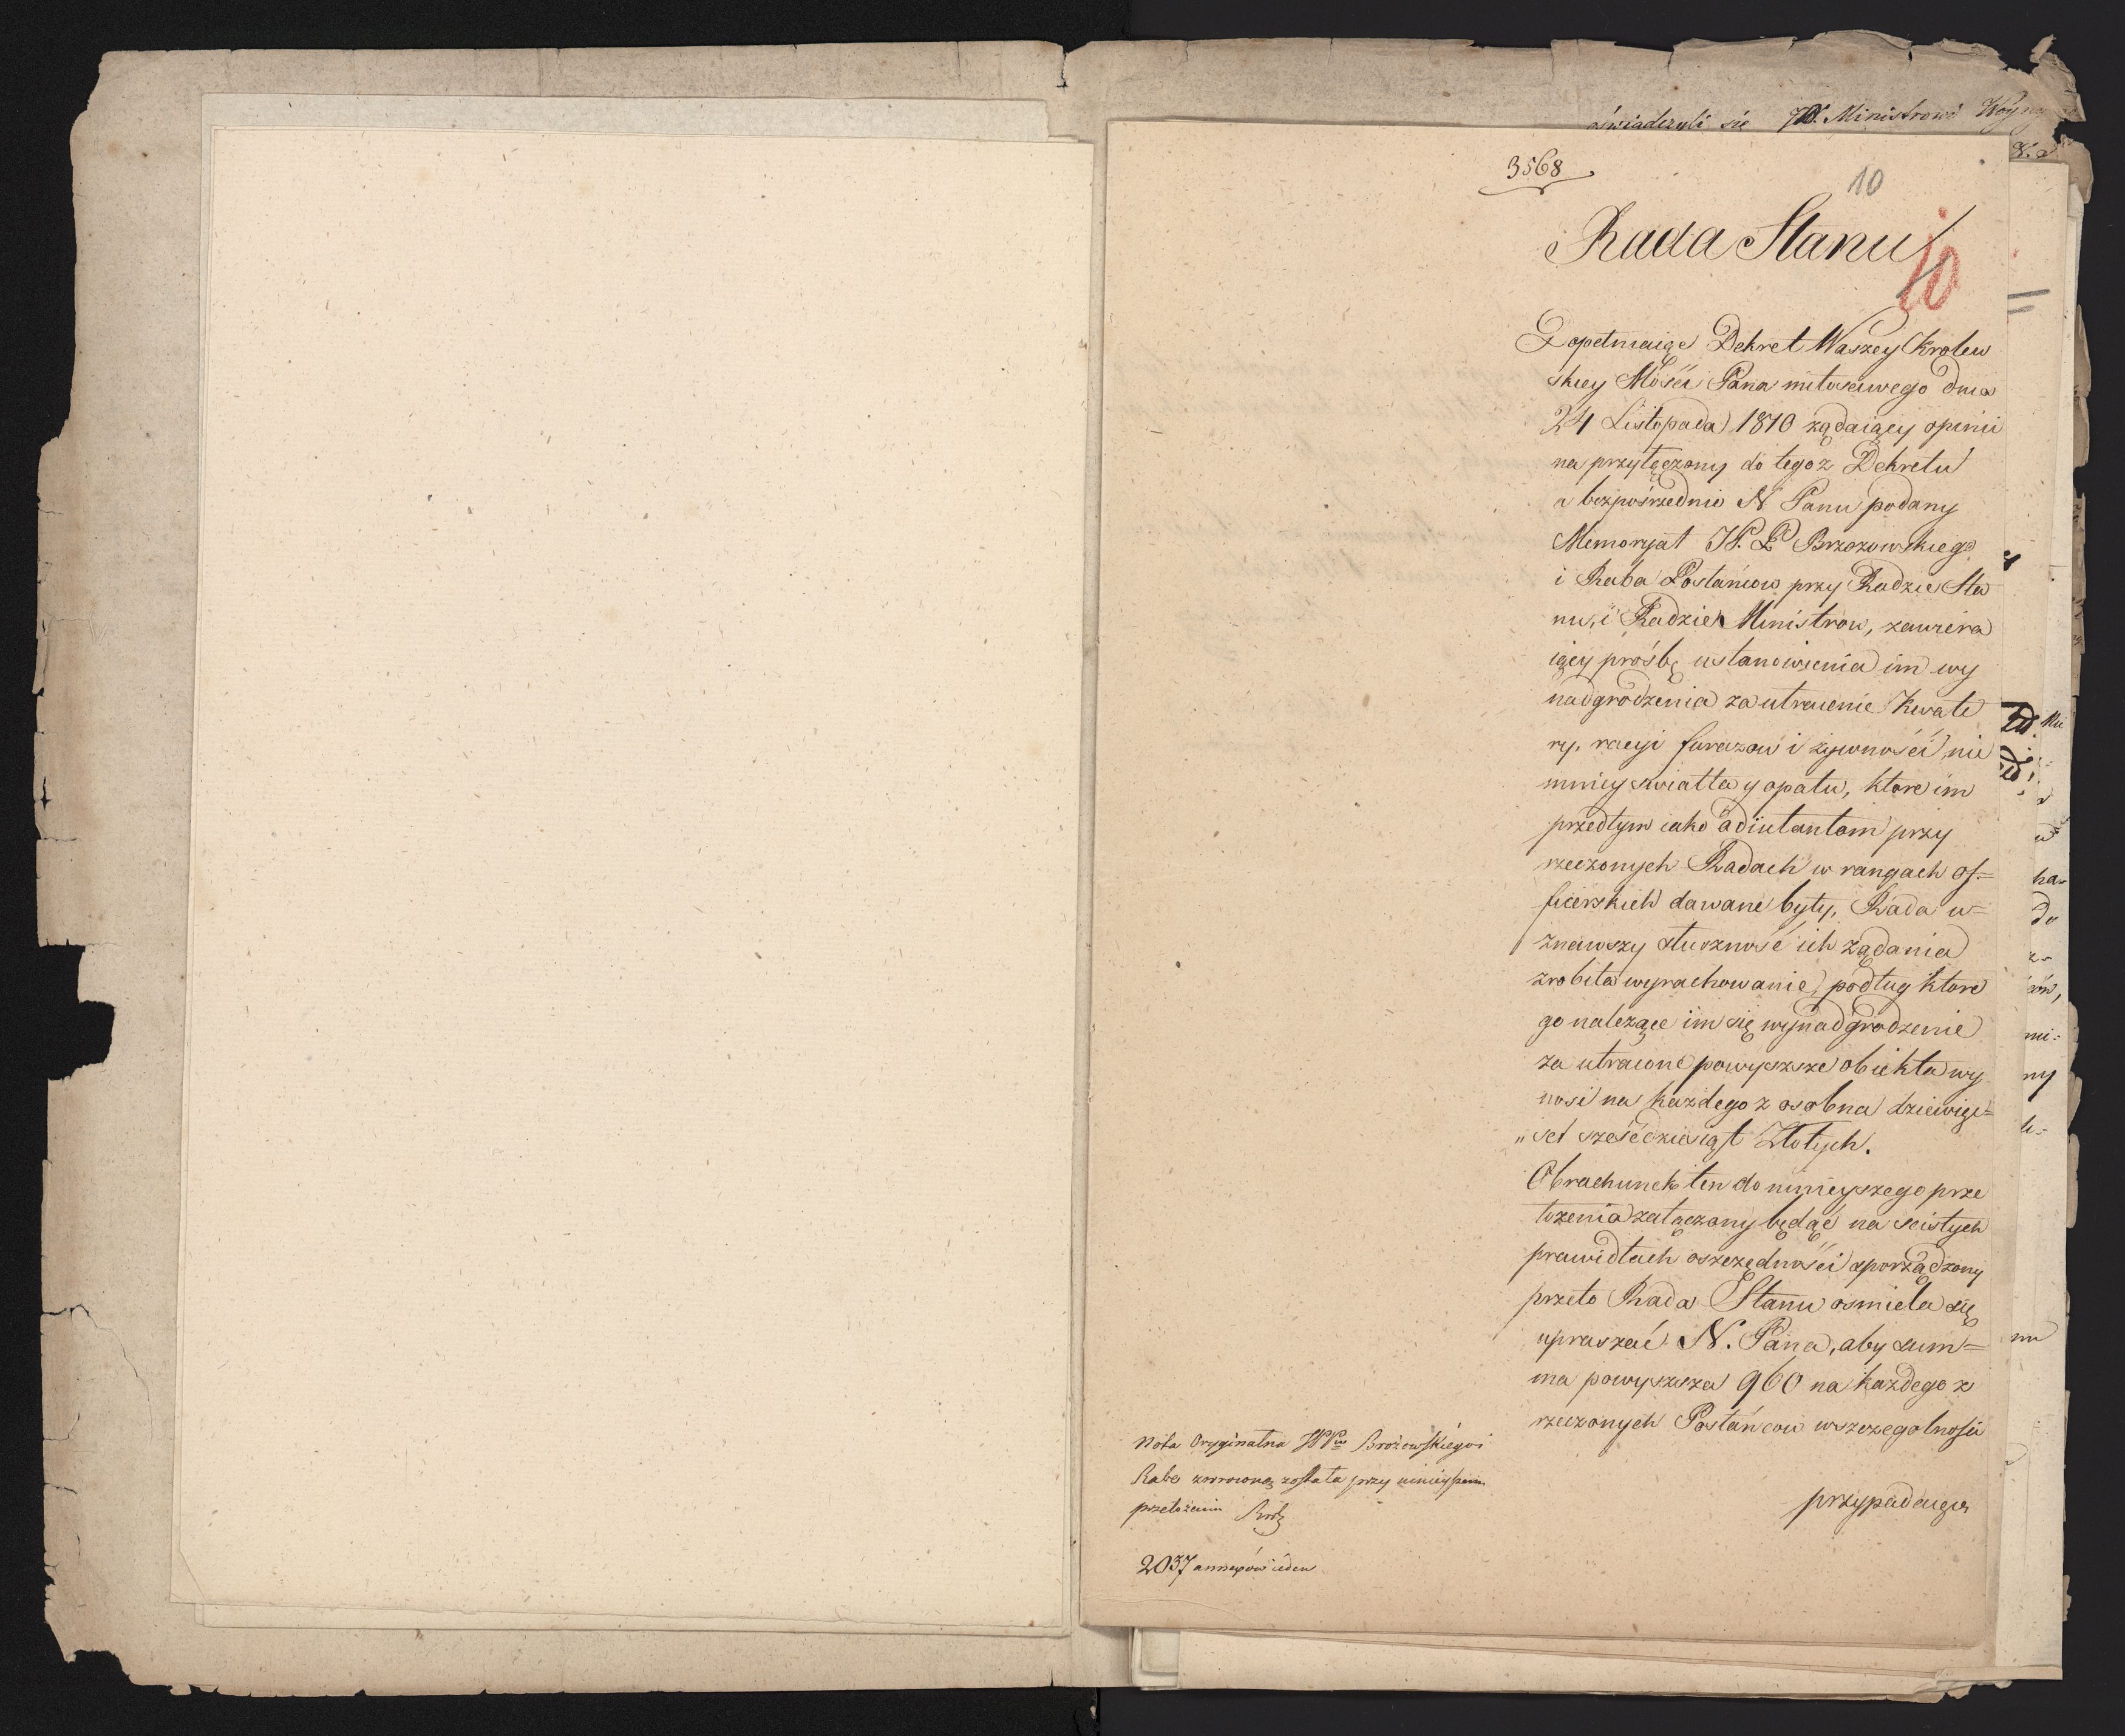 świadczyli się JW. Ministrowi Woyny
3568
10
Rada Stanu
10
Dopełniaiąc Dekret Waszey Krolew
skiey Mości Pana miłosciwego dnia
24 Listopada 1810 żądaiący opinii
na przyłączony do tegoż Dekretu
a bezpośrzednio N Panu podany
Memoryał Brzozowskiego
i Raba Posłańcow przy Radzie Sta
nu, i Radzie Ministrow, zawiera
iący prośbę ustanowienia im wy
nadgrodzenia za utracenie Kwate
ry, racyi furażow i żywności nie
mniey swiatła y opału, ktore im
przedtym iako adiutantom przy
rzeczonych Radach w rangach of=
ficerskich dawane były, Rada u=
znawszy słuszność ich żądania
zrobiła wyrachowanie, podług ktore
go należące im się wynadgrodzenie
za utracone powyższe obiekta wy
nosi na każdego z osobna dziewięc=
„set sześćdziesiąt Złotych.
Obrachunek ten do ninieyszego prze
łożenia załączony będąc na scisłych
prawidłach oszczędności sporządzony
przeto Rada Stanu osmiela się
upraszać N. Pana, aby sum=
ma powyższa 960 na każdego z
rzeczonych Posłańcow wszczegolności
przypadaiąca
Nota Oryginalna Brozowskiego i
Raba zwrocona została przy ninieyszem
przełożeniu
2037 annexów ieden